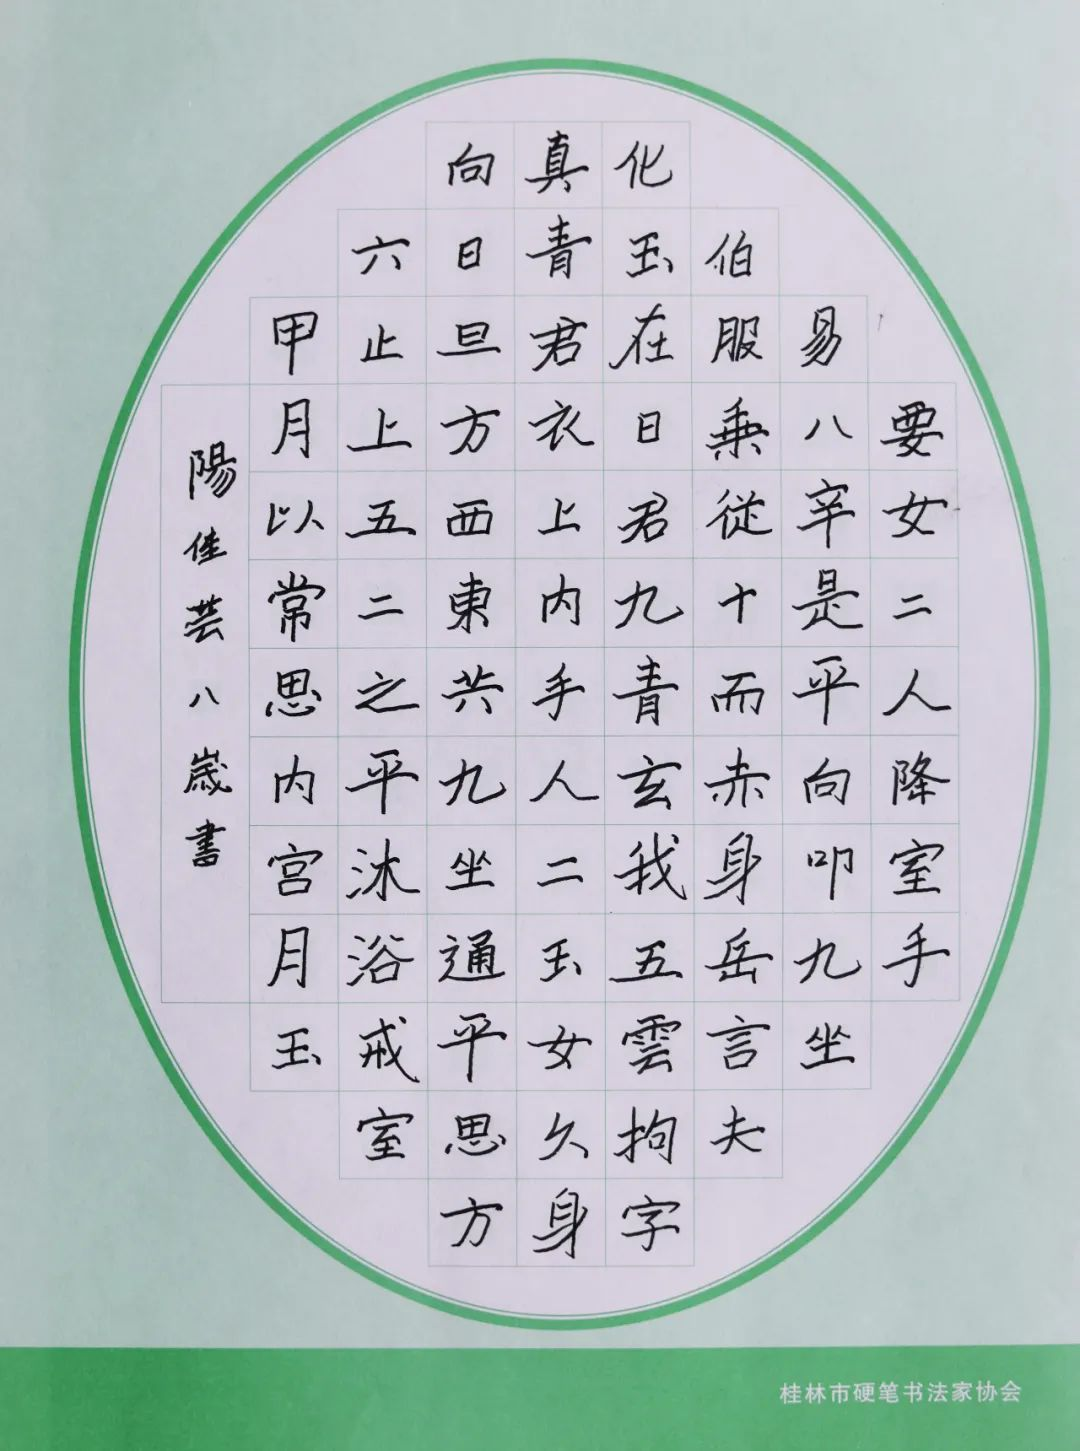 要女二人降室手
易八辛是平向叩九坐
伯服乘從十而赤身岳言夫
化玉在日君九青玄我五雲拘字
真青君衣上内手人二玉女久身
向日旦方西東共九坐通平思方
六止上五二之平沐浴戒室
甲月以常思内宫月玉
陽佳芸八歲書
桂林市硬笔书法家协会